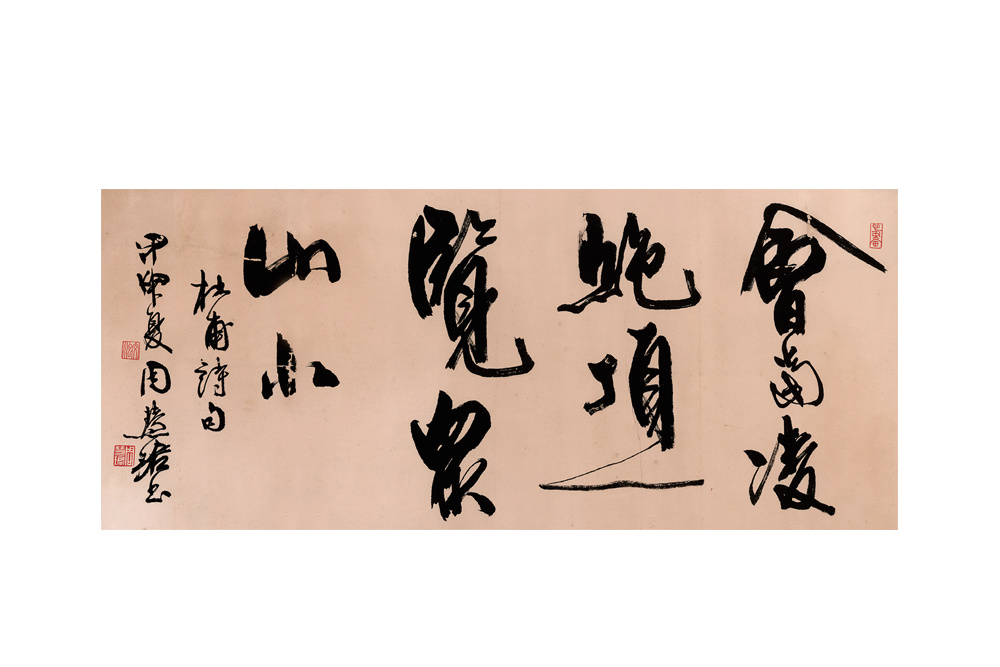 會當凌
絶頂一
覽衆
山小
杜甫詩句
甲申夏周慧珺書